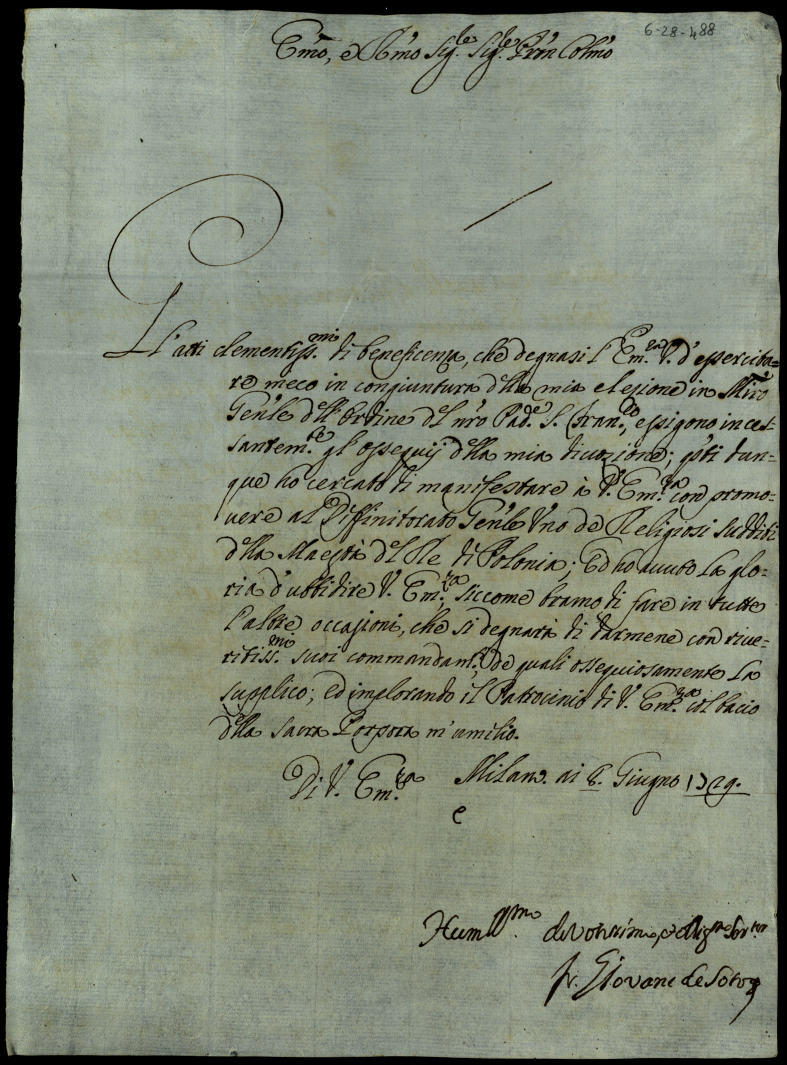 6-28-488
Emo, e Rmo Sigre. Sigre. Pron Colmo
Gl'atti clementiss.mi di beneficenza, che degnasi l'Em.za V. d'essercita=
re meco in congiuntura della mia elezione in Miro
Gen'le dell'Ordine del nro Pad.e S. Fran.co, essigono inces=
santem.te gl'ossequij della mia divozione; q'sti dun=
que ho cercato di manifestare à V. Em.za con promo=
vere al Diffinitorato Gen'le Uno de Religiosi sudditi
della Maestà del Re di Polonia; Ed ho avuto la glo=
ria d'ubbidire V. Em.za, siccome bramo di fare in tutte
l'altre occasioni, che si degnarà di darmene con rive=
ritiss.mi suoi commandam.ti, de quali ossequiosamente la
supplico; ed implorando il Patrocinio di V. Em.za col bacio
della Sacra Porpora m'umilio.
Di V. Em.za Milano. ai 8. Giugno 1729.
e
Humil.mo devotissimo, e oblig.mo Ser.tor
fr. Giovane de Soto